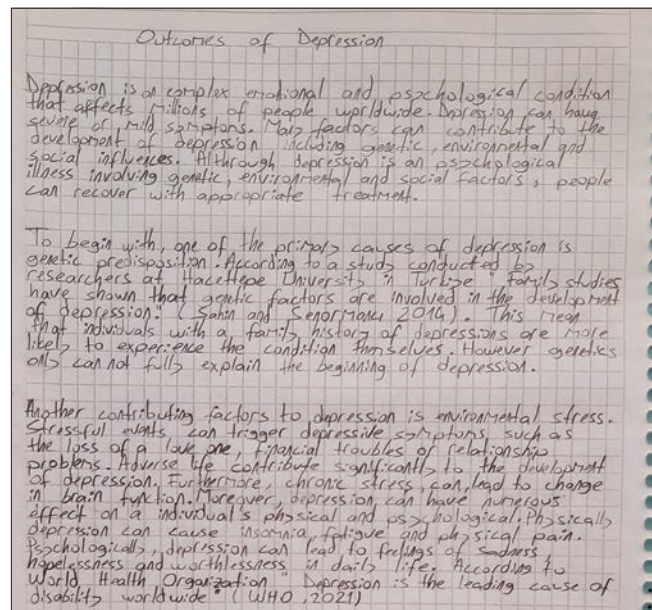 Outcomes of Depression
Depression is an complex emotional and psychological condition
that affects millions of people worldwide. Depression can have
severe or mild symptoms. Many factors can contribute to the
development of depression including genetic, environmetal and
social influences. Althrough depression is an psychological
illness involving genetic, environmental and social factors, people
can recover with appropriate treatment.
To begin with, one of the primary causes of depression is
genetic predisposition. According to a study conducted by
researchers at Hacettepe University in Turkiye "Family studies
have shown that genetic factors are involved in the development
of depression." (Sahin and Senormancı 2014). This mean
that individuals with a family history of depressions are more
likely to experience the condition themselves. However genetics
only can not fully explain the beginning of depression.
Another contributing factors to depression is environmental stress.
Stressful events can trigger depressive symptoms, such as
the loss of a love one, financial troubles or relationship
problems. Adverse life contribute significantly to the development
of depression. Furthermore, chronic stress can lead to change
in brain function. Moreover, depression can have numerous
effect on a individual's physical and psychological. Physically
depression can cause insomnia, fatigue and physical pain.
Psychologically, depression can lead to feelings of sadness,
hopelessness and worthlessness in daily life. According to
World Health Organization "Depression is the leading cause of
disability worldwide" (WHO, 2021)